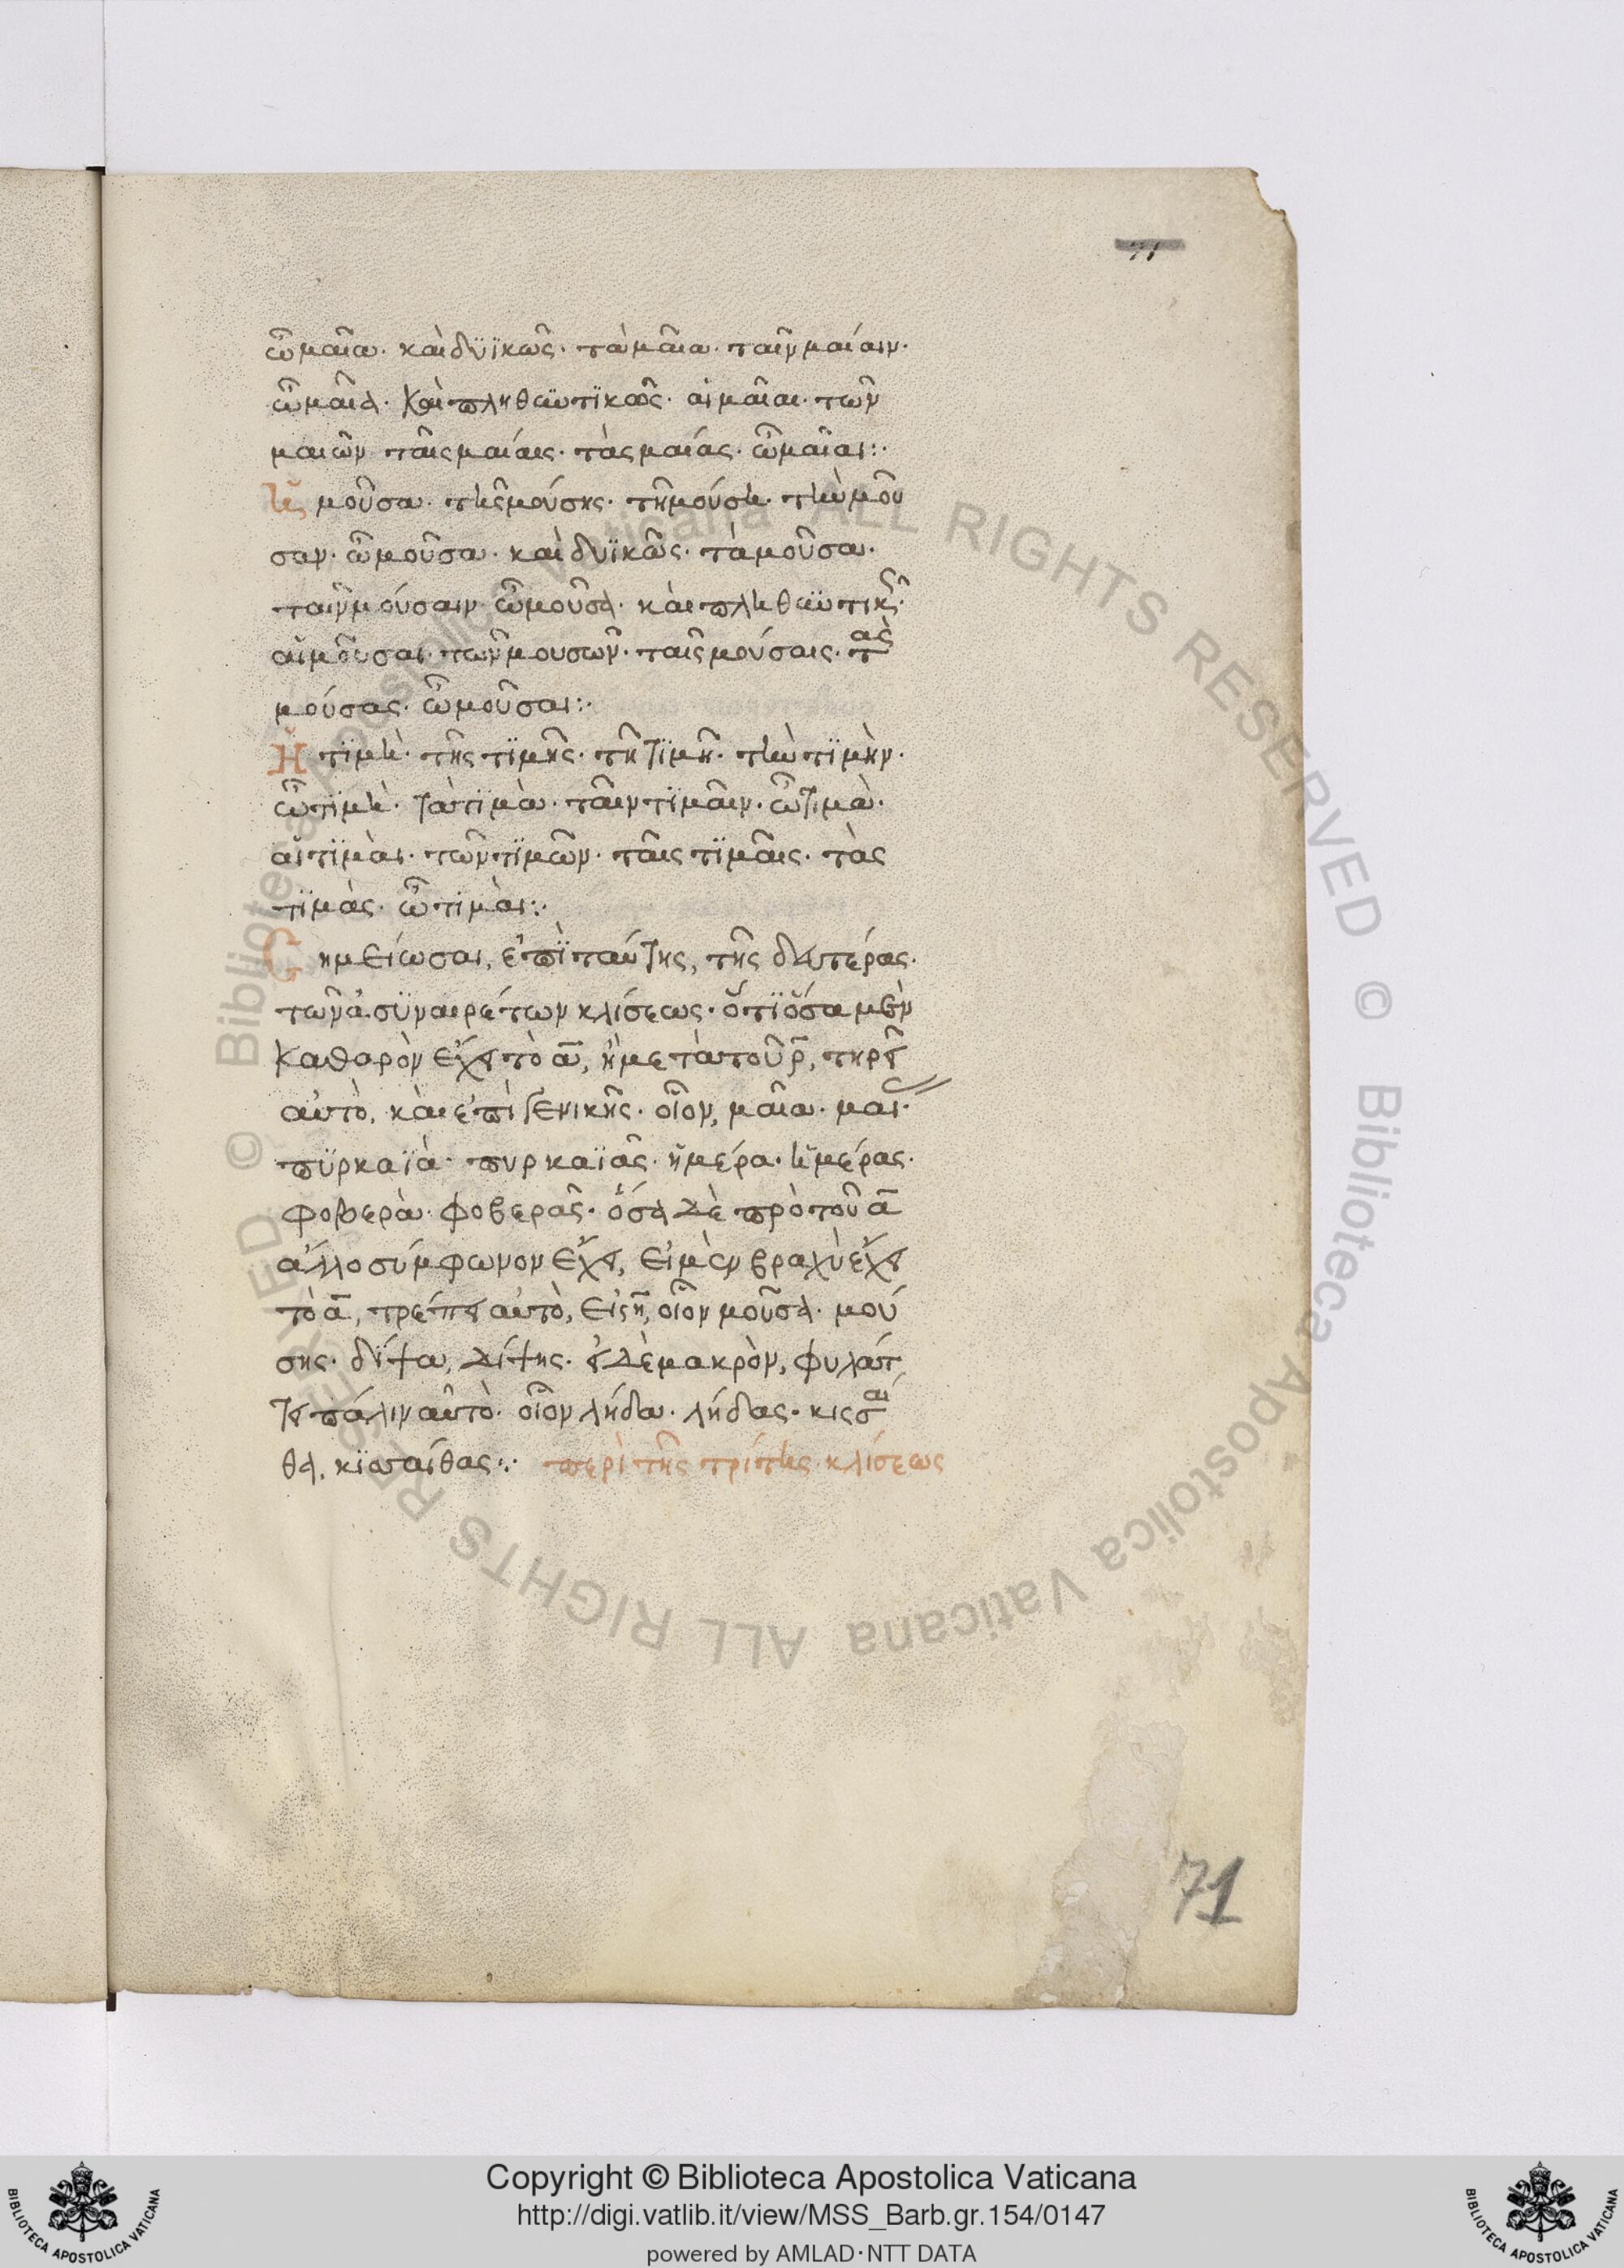 71
ὦ μαῖα· καὶ δυϊκῶς· τὰ μαῖα· ταῖν μαίαιν·
ὦ μαῖα· καὶ πληθυντικῶς· αἱ μαῖαι· τῶν
μαιῶν ταῖς μαίαις· τὰς μαίας· ὦ μαῖαι:·
ἡ μοῦσα· τῆς μούσης· τῆ μούση· τὴν μοῦ
σαν· ὦ μοῦσα· καὶ δυϊκῶς· τὰ μοῦσα·
ταῖν μούσαιν· ὦ μοῦσα· καὶ πληθυντικῶς·
αἱ μοῦσαι· τῶν μουσῶν· ταῖς μούσαις· τὰς
μούσας· ὦ μοῦσαι:·
Ἡ τϊμὴ· τῆς τϊμῆς· τῆ τϊμῆ· τὴν τϊμὴν·
ὦ τϊμὴ· τὰ τϊμὰ· ταῖν τϊμαῖν· ὦ τιμὰ·
αἱ τϊμαὶ· τῶν τϊμῶν· ταῖς τϊμαῖς· τὰς
τϊμὰς· ὦ τιμαὶ:·
Σημείωσαι, ἐπῒ ταύτης, τῆς δευτέρας·
τῶν ἀσϋναιρέτων κλίσεως· ὅτϊ ὅσα μὲν
καθαρὸν ἔχει τὸ α, ἢ μετὰ τοῦ ρ, τηρεῖ
αὐτὸ, καὶ ἐπὶ γενικῆς· οἷον, μαῖα· μαι·
πϋρκαϊὰ· πυρκαϊᾶς· ἡμέρα· ἡμέρας·
φοβερὰ· φοβερᾶς· ὅσα δὲ πρὸ τοῦ α
ἄλλο σύμφωνον ἔχει, εἰ μὲν βραχὺ ἔχει
τὸ α, τρέπει αὐτὸ, εἰς η, οἷον μοῦσα· μού
σης· δίψα, δίψης· εἰ δὲ μακρὸν, φυλάτ
τει πάλιν αὐτὸ· οἷον λήδα· λήδας· κισσαί
θα, κϊσσαίθας:· περὶ τῆς τρίτης κλίσεως
71
© Biblioteca Apostolica Vaticana ALL RIGHTS RESERVED © Biblioteca Apostolica Vaticana ALL RIGHTS RESERVED
Copyright © Biblioteca Apostolica Vaticana
http://digi.vatlib.it/view/MSS_Barb.gr.154/0147
powered by AMLAD·NTT DATA
BIBLIOTECA APOSTOLICA VATICANA
BIBLIOTECA APOSTOLICA VATICANA